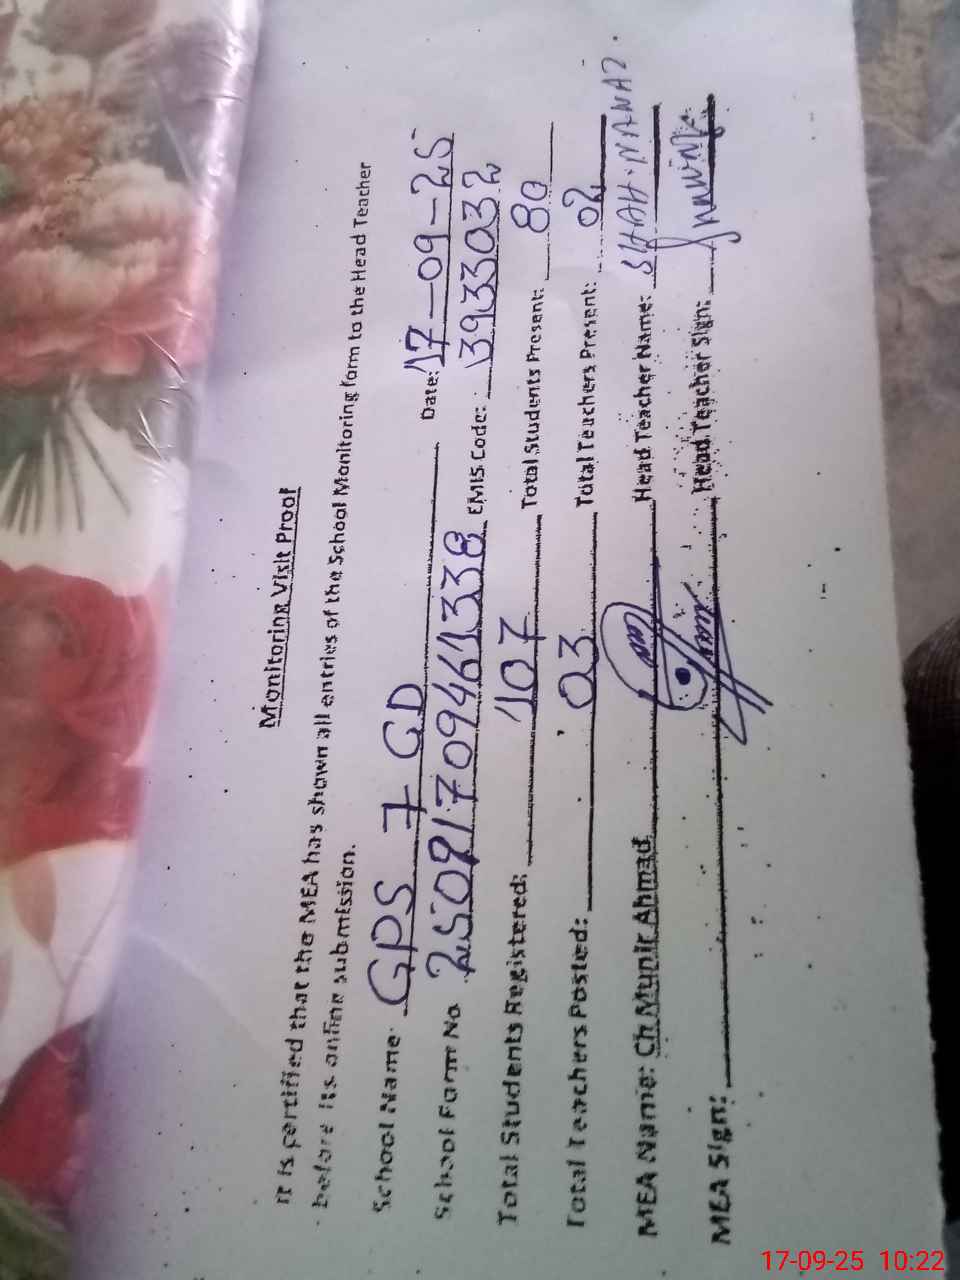 Monitoring Visit Proof
It is certified that the MEA has shown all entries of the School Monitoring form to the Head Teacher
before its online submission.
School Name: GPS 7 GD Date: 17-09-25
School Form No. 250917094661338 EMIS Code: 3933032
Total Students Registered: 107 Total Students Present: 80
Total Teachers Posted: 03 Total Teachers Present: 02
MEA Name: Ch Munir Ahmad Head Teacher Name: SHAH.NAWAZ
MEA Sign: Head Teacher Sign:
17-09-25 10:22